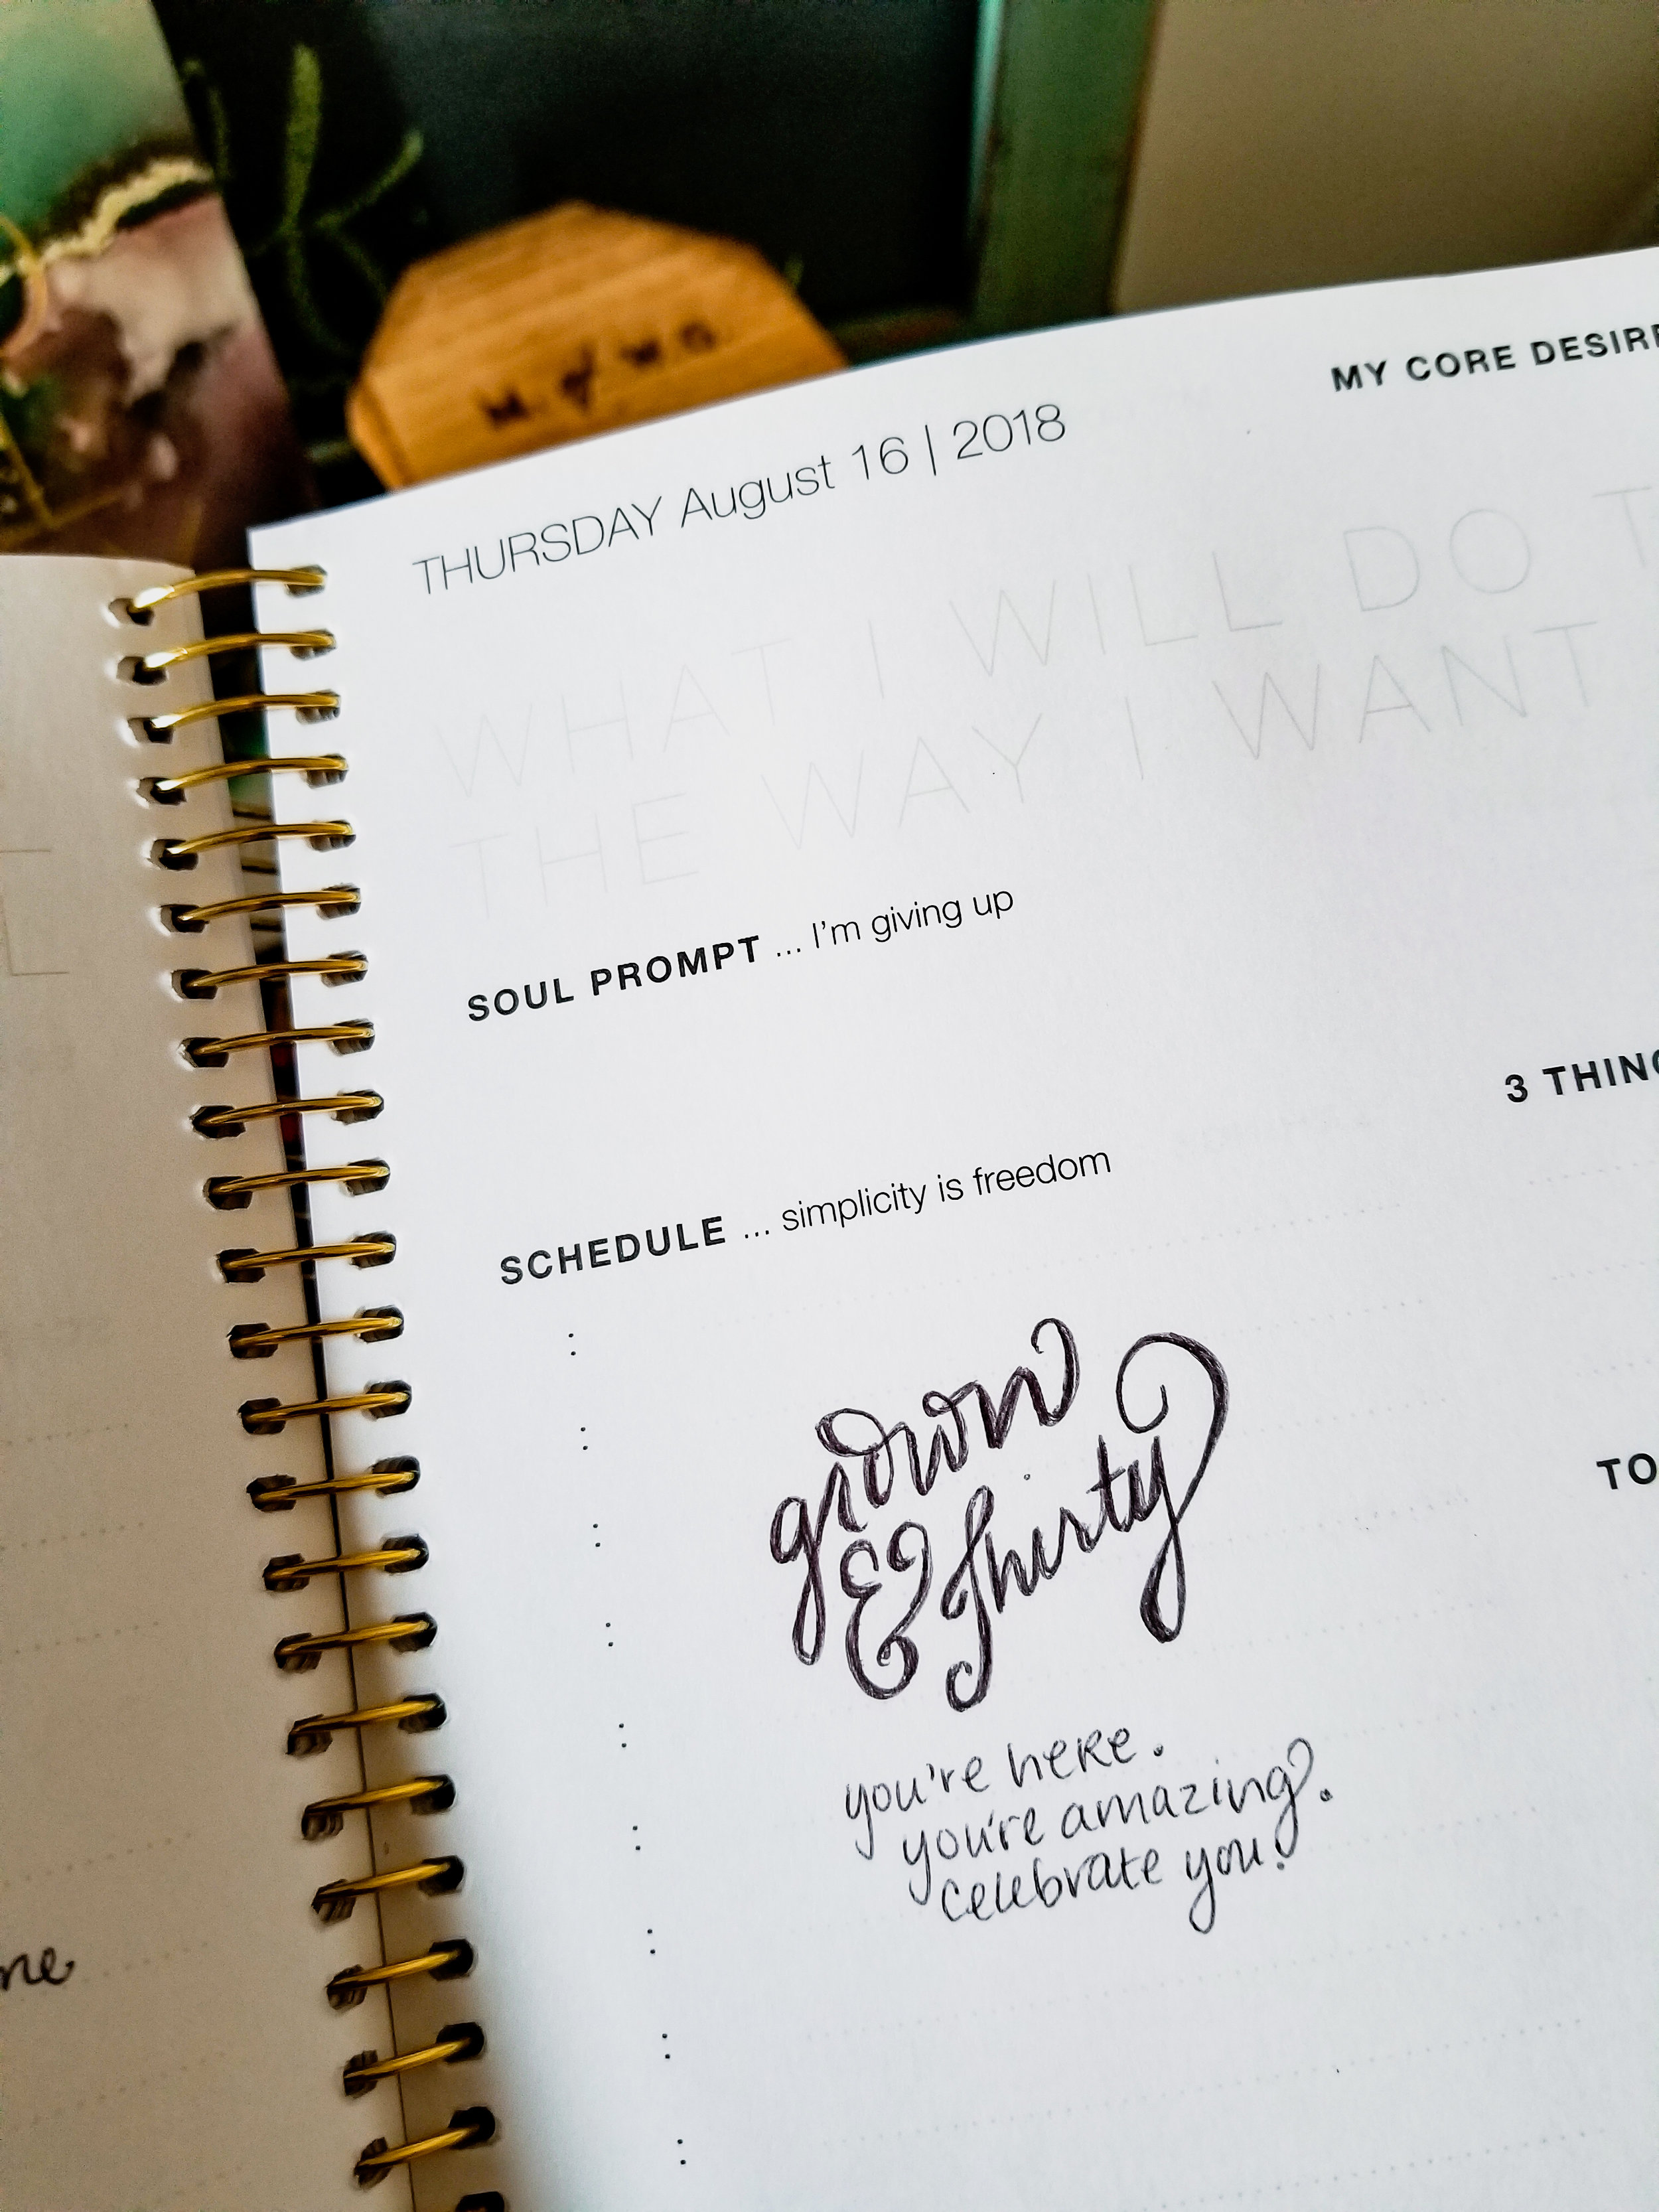 M. of W.O.
THURSDAY August 16 | 2018
MY CORE DESIRE
WHAT I WILL DO T
THE WAY I WANT
SOUL PROMPT ... I'm giving up
3 THING
SCHEDULE ... simplicity is freedom
grown
& thirty
TO
you're here.
you're amazing.
celebrate you!
ne